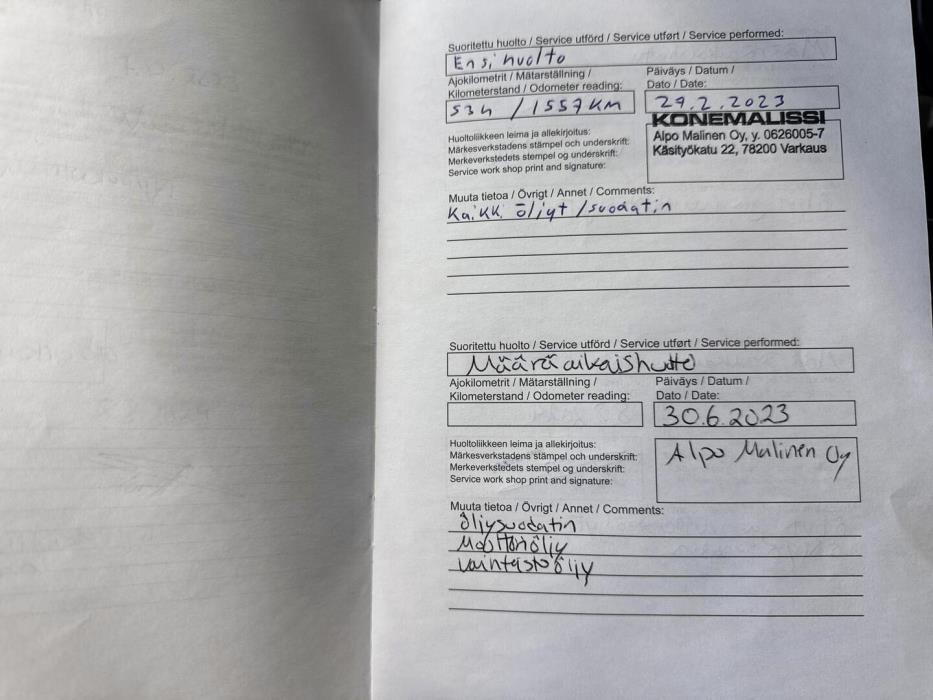 Suoritettu huolto / Service utförd / Service utført / Service performed:
Ensihuolto
Ajokilometrit / Mätarställning /
Kilometerstand / Odometer reading:
53h / 1557KM
Päiväys / Datum /
Dato / Date:
29.2.2023
Huoltoliikkeen leima ja allekirjoitus:
Märkesverkstadens stämpel och underskrift:
Merkeverkstedets stempel og underskrift:
Service work shop print and signature:
KONEMALISSI
Alpo Malinen Oy, y. 0626005-7
Käsityökatu 22, 78200 Varkaus
Muuta tietoa / Övrigt / Annet / Comments:
Kaikki öljyt / suodatin
Suoritettu huolto / Service utförd / Service utført / Service performed:
Määräaikaishuolto
Ajokilometrit / Mätarställning /
Kilometerstand / Odometer reading:
Päiväys / Datum /
Dato / Date:
30.6.2023
Huoltoliikkeen leima ja allekirjoitus:
Märkesverkstadens stämpel och underskrift:
Merkeverkstedets stempel og underskrift:
Service work shop print and signature:
Alpo Malinen Oy
Muuta tietoa / Övrigt / Annet / Comments:
öljysuodatin
Moottoriöljy
vaihteistoöljy